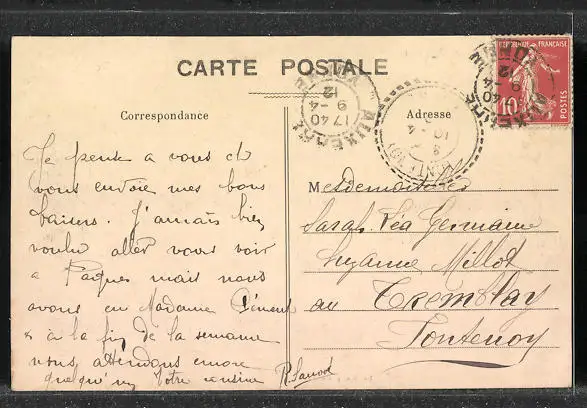 CARTE POSTALE
Correspondance
Adresse
RÉPUBLIQUE FRANÇAISE
10c
POSTES
AUXERRE
YONNE
17 40
9 - 4
12
AUXERRE
17 40
9 - 4
12
10 - 4
Je pense a vous et
vous envoie mes bons
baisers. J'aurais bien
voulu aller vous voir
a Pâques mais nous
avons eu Madame Clément
à la fin de la semaine
nous attendons encore
quelqu'un Votre cousine
Mesdemoiselles
Sarah Léa Germaine
Suzanne Millot
au Tremblay
Fontenoy